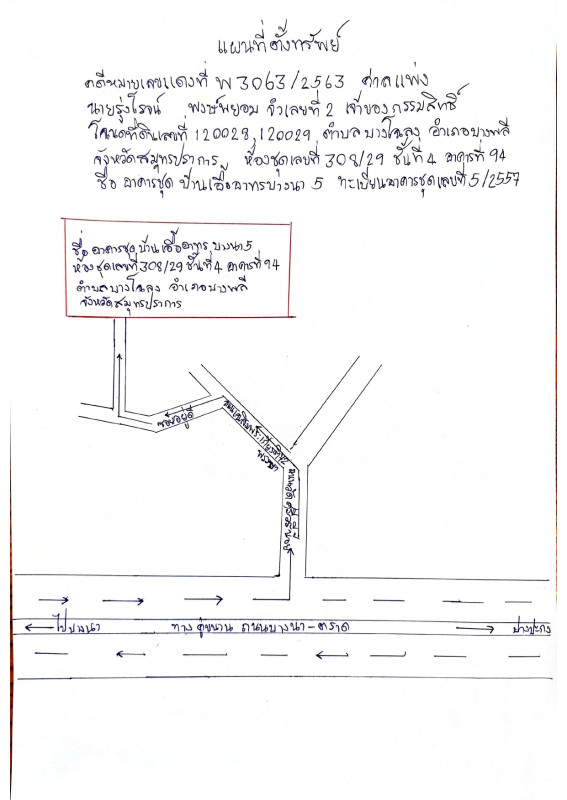 แผนที่ตั้งทรัพย์
คดีหมายเลขแดงที่ พ 3063/2563 ศาลแพ่ง
นายรุ่งโรจน์ พงษ์พยอม จำเลยที่ 2 เจ้าของกรรมสิทธิ์
โฉนดที่ดินเลขที่ 120028, 120029 ตำบลบางโฉลง อำเภอบางพลี
จังหวัดสมุทรปราการ ห้องชุดเลขที่ 308/29 ชั้นที่ 4 อาคารที่ 94
ชื่อ อาคารชุด บ้านเอื้ออาทรบางนา 5 ทะเบียนอาคารชุดเลขที่ 5/2557
ชื่อ อาคารชุด บ้านเอื้ออาทร บางนา 5
ห้องชุดเลขที่ 308/29 ชั้นที่ 4 อาคารที่ 94
ตำบลบางโฉลง อำเภอบางพลี
จังหวัดสมุทรปราการ
ซอยอยู่ดี
ไปบางนา
ทางคู่ขนาน ถนนบางนา-ตราด
บางปะกง